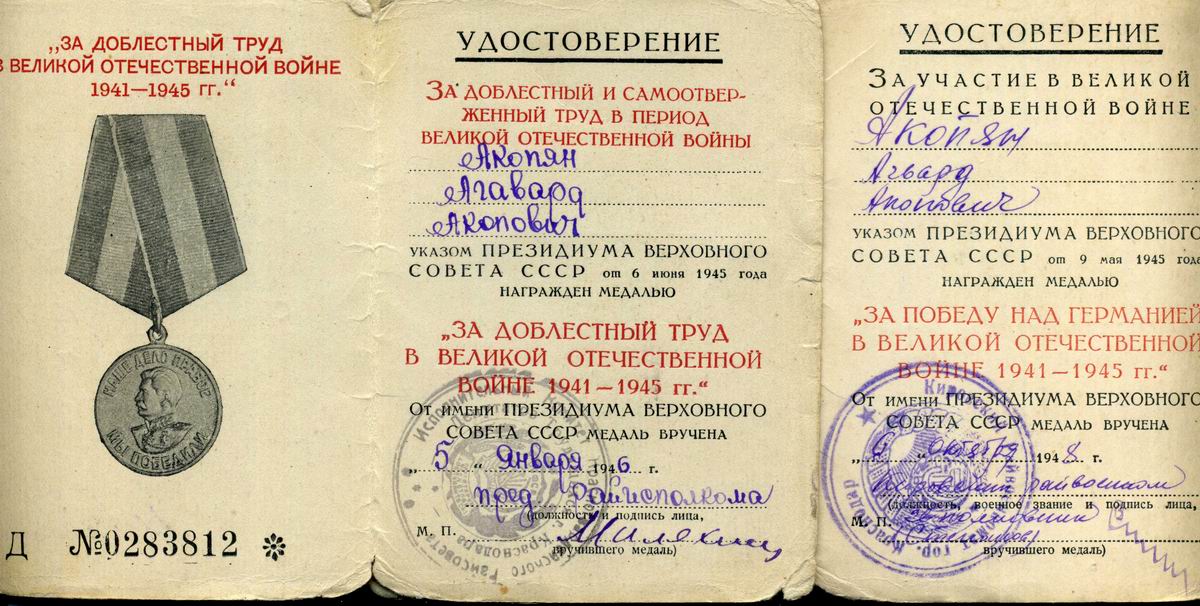 „ЗА ДОБЛЕСТНЫЙ ТРУД
В ВЕЛИКОЙ ОТЕЧЕСТВЕННОЙ ВОЙНЕ
1941—1945 гг.“
НАШЕ ДЕЛО ПРАВОЕ
МЫ ПОБЕДИЛИ
Д №0283812 *
УДОСТОВЕРЕНИЕ
ЗА ДОБЛЕСТНЫЙ И САМООТВЕР-
ЖЕННЫЙ ТРУД В ПЕРИОД
ВЕЛИКОЙ ОТЕЧЕСТВЕННОЙ ВОЙНЫ
Акопян
Агавард
Акопович
УКАЗОМ ПРЕЗИДИУМА ВЕРХОВНОГО
СОВЕТА СССР от 6 июня 1945 года
НАГРАЖДЕН МЕДАЛЬЮ
„ЗА ДОБЛЕСТНЫЙ ТРУД
В ВЕЛИКОЙ ОТЕЧЕСТВЕННОЙ
ВОЙНЕ 1941—1945 гг.“
От имени ПРЕЗИДИУМА ВЕРХОВНОГО
СОВЕТА СССР МЕДАЛЬ ВРУЧЕНА
„5“ Января 1946 г.
пред. Райисполкома
(должность и подпись лица,
М. П.
вручившего медаль)
Исполнительный Комитет
г. Краснодара
УДОСТОВЕРЕНИЕ
ЗА УЧАСТИЕ В ВЕЛИКОЙ
ОТЕЧЕСТВЕННОЙ ВОЙНЕ
Акопян
Агвард
Акопович
УКАЗОМ ПРЕЗИДИУМА ВЕРХОВНОГО
СОВЕТА СССР от 9 мая 1945 года
НАГРАЖДЕН МЕДАЛЬЮ
„ЗА ПОБЕДУ НАД ГЕРМАНИЕЙ
В ВЕЛИКОЙ ОТЕЧЕСТВЕННОЙ
ВОЙНЕ 1941—1945 гг.“
От имени ПРЕЗИДИУМА ВЕРХОВНОГО
СОВЕТА СССР МЕДАЛЬ ВРУЧЕНА
„6“ октября 1948 г.
райвоенком
(должность, военное звание и подпись лица,
М. П. подполковник
вручившего медаль)
Кировский
гор. Краснодар